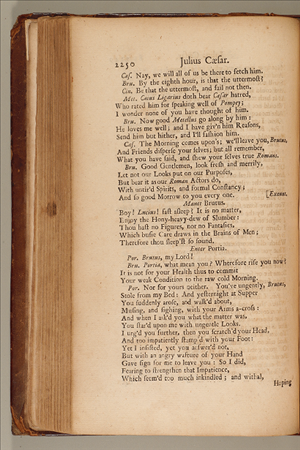 2250 Julius Cæsar.
Cas. Nay, we will all of us be there to fetch him.
Bru. By the eighth hour, is that the uttermost?
Cin. Be that the uttermost, and fail not then.
Met. Caius Ligarius doth bear Cæsar hatred,
Who rated him for speaking well of Pompey;
I wonder none of you have thought of him.
Bru. Now good Metellus go along by him:
He loves me well; and I have giv'n him Reasons,
Send him but hither, and I'll fashion him.
Cas. The Morning comes upon's; we'll leave you, Brutus,
And Friends disperse your selves; but all remember,
What you have said, and shew your selves true Romans.
Bru. Good Gentlemen, look fresh and merrily,
Let not our Looks put on our Purposes,
But bear it as our Roman Actors do,
With untir'd Spirits, and formal Constancy;
And so good Morrow to you every one. [Exeunt.
Manet Brutus.
Boy! Lucius! fast asleep? It is no matter,
Enjoy the Hony-heavy-dew of Slumber:
Thou hast no Figures, nor no Fantasies,
Which busie Care draws in the Brains of Men;
Therefore thou sleep'st so sound.
Enter Portia.
Por. Brutus, my Lord!
Bru. Portia, what mean you? Wherefore rise you now?
It is not for your Health thus to commit
Your weak Condition to the raw cold Morning.
Por. Nor for yours neither. You've ungently, Brutus,
Stole from my Bed: And yesternight at Supper
You suddenly arose, and walk'd about,
Musing, and sighing, with your Arms a-cross:
And when I ask'd you what the matter was,
You star'd upon me with ungentle Looks.
I urg'd you further, then you scratch'd your Head,
And too impatiently stamp'd with your Foot:
Yet I insisted, yet you answer'd not,
But with an angry wafture of your Hand
Gave sign for me to leave you: So I did,
Fearing to strengthen that Impatience,
Which seem'd too much inkindled; and withal,
Hoping